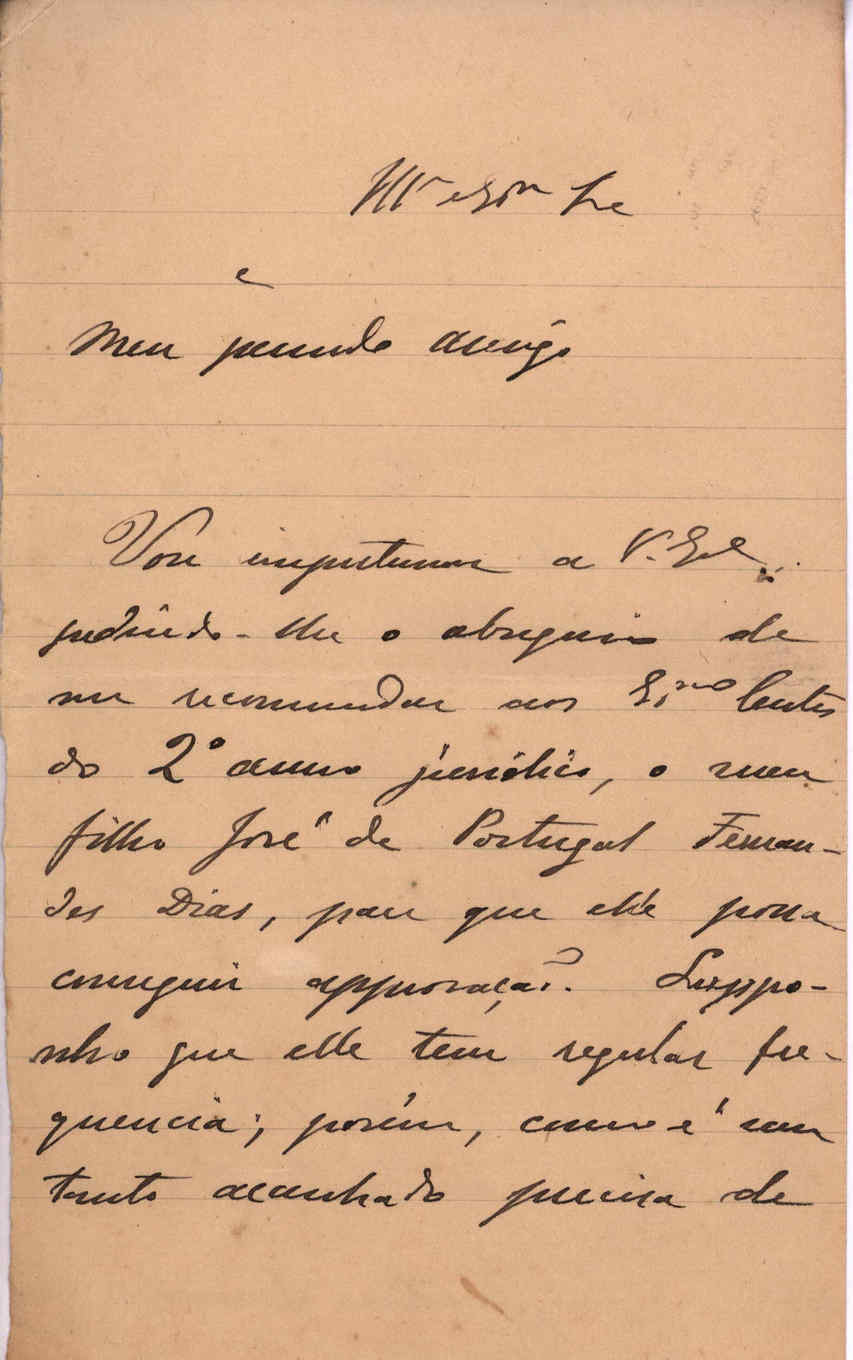 Ill.mo e Ex.mo Snr
e
Meu presado amigo
Vou importunar a V. Ex.cia,
pedindo-lhe o obsequio de
me recommendar aos Ex.mos lentes
do 2º anno juridico, o meu
filho José de Portugal Fernan-
des Dias, para que elle possa
conseguir approvação. Suppo-
nho que elle tem regular fre-
quencia; porém, como é um
tanto acanhado precisa de